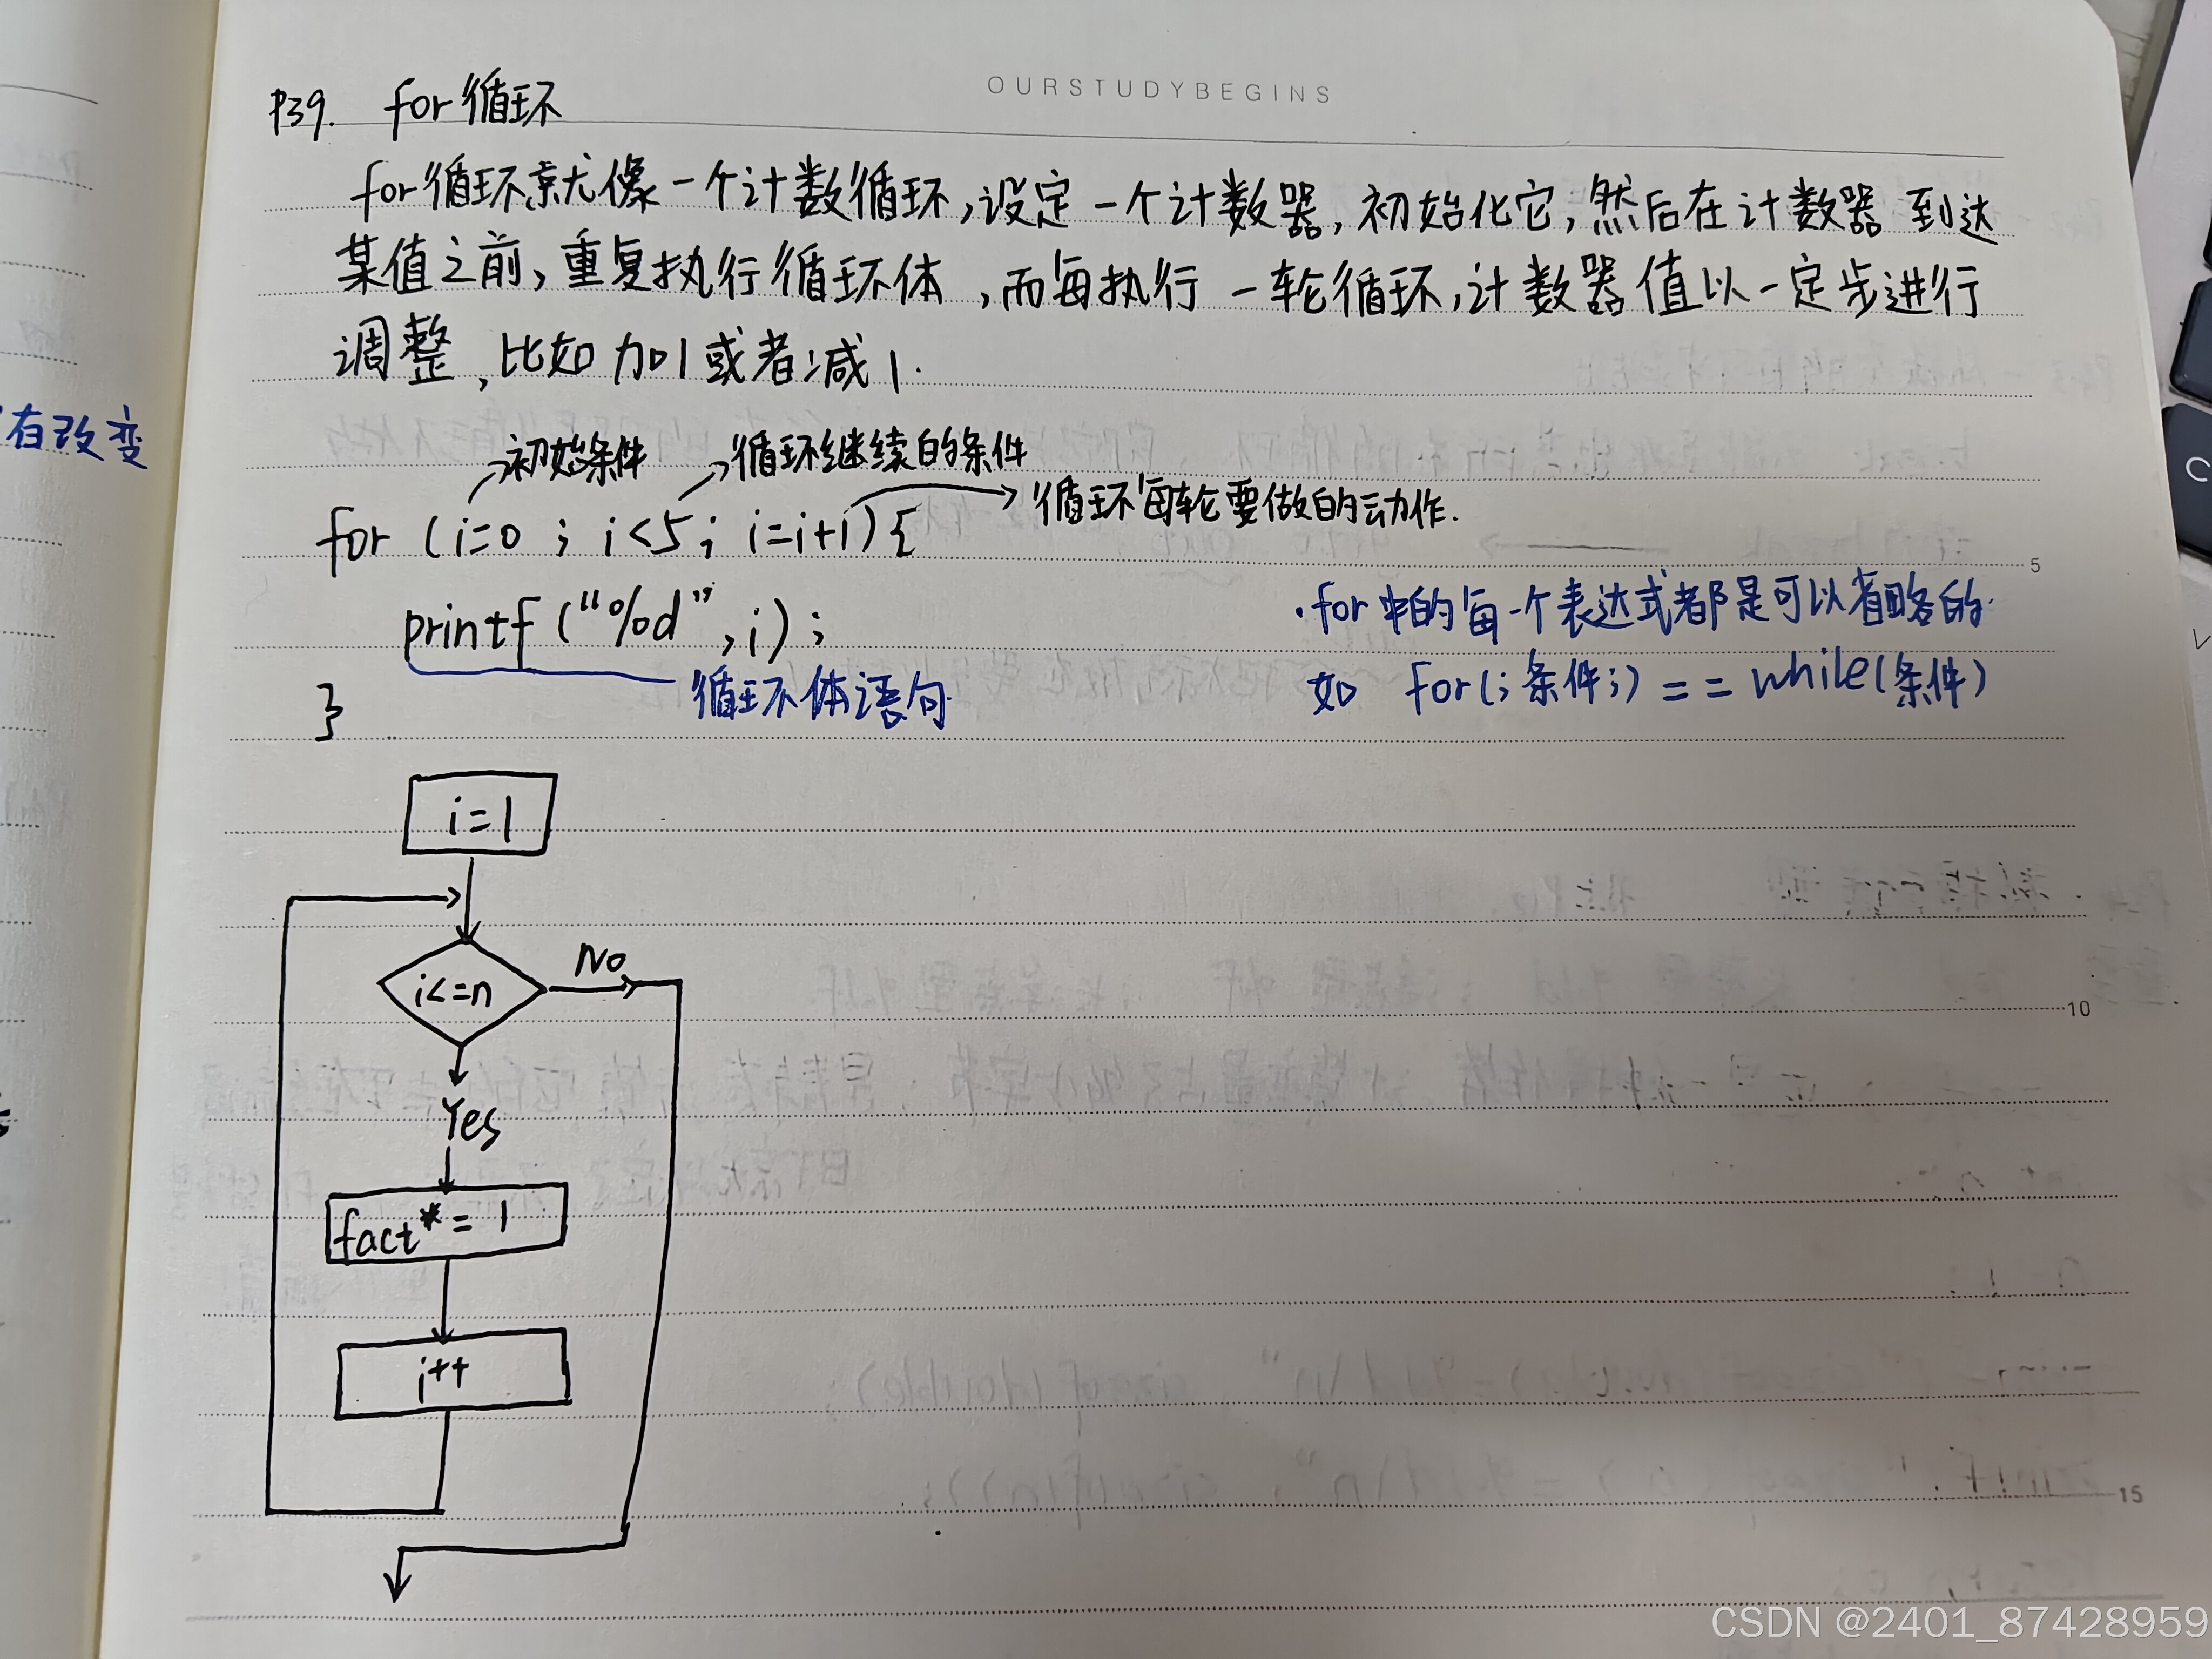 OURSTUDYBEGINS
P39. for循环
for循环就像一个计数循环,设定一个计数器,初始化它,然后在计数器到达
某值之前,重复执行循环体,而每执行一轮循环,计数器值以一定步进行
调整,比如加1或者减1.
有改变
初始条件 循环继续的条件
循环每轮要做的动作.
for (i=0 ; i<5; i=i+1){
printf("%d",i);
循环体语句
}
·for中的每一个表达式都是可以省略的
如 for(;条件;) == while(条件)
5
i=1
i<=n
No
Yes
fact*= 1
i++
10
15
CSDN @2401_87428959